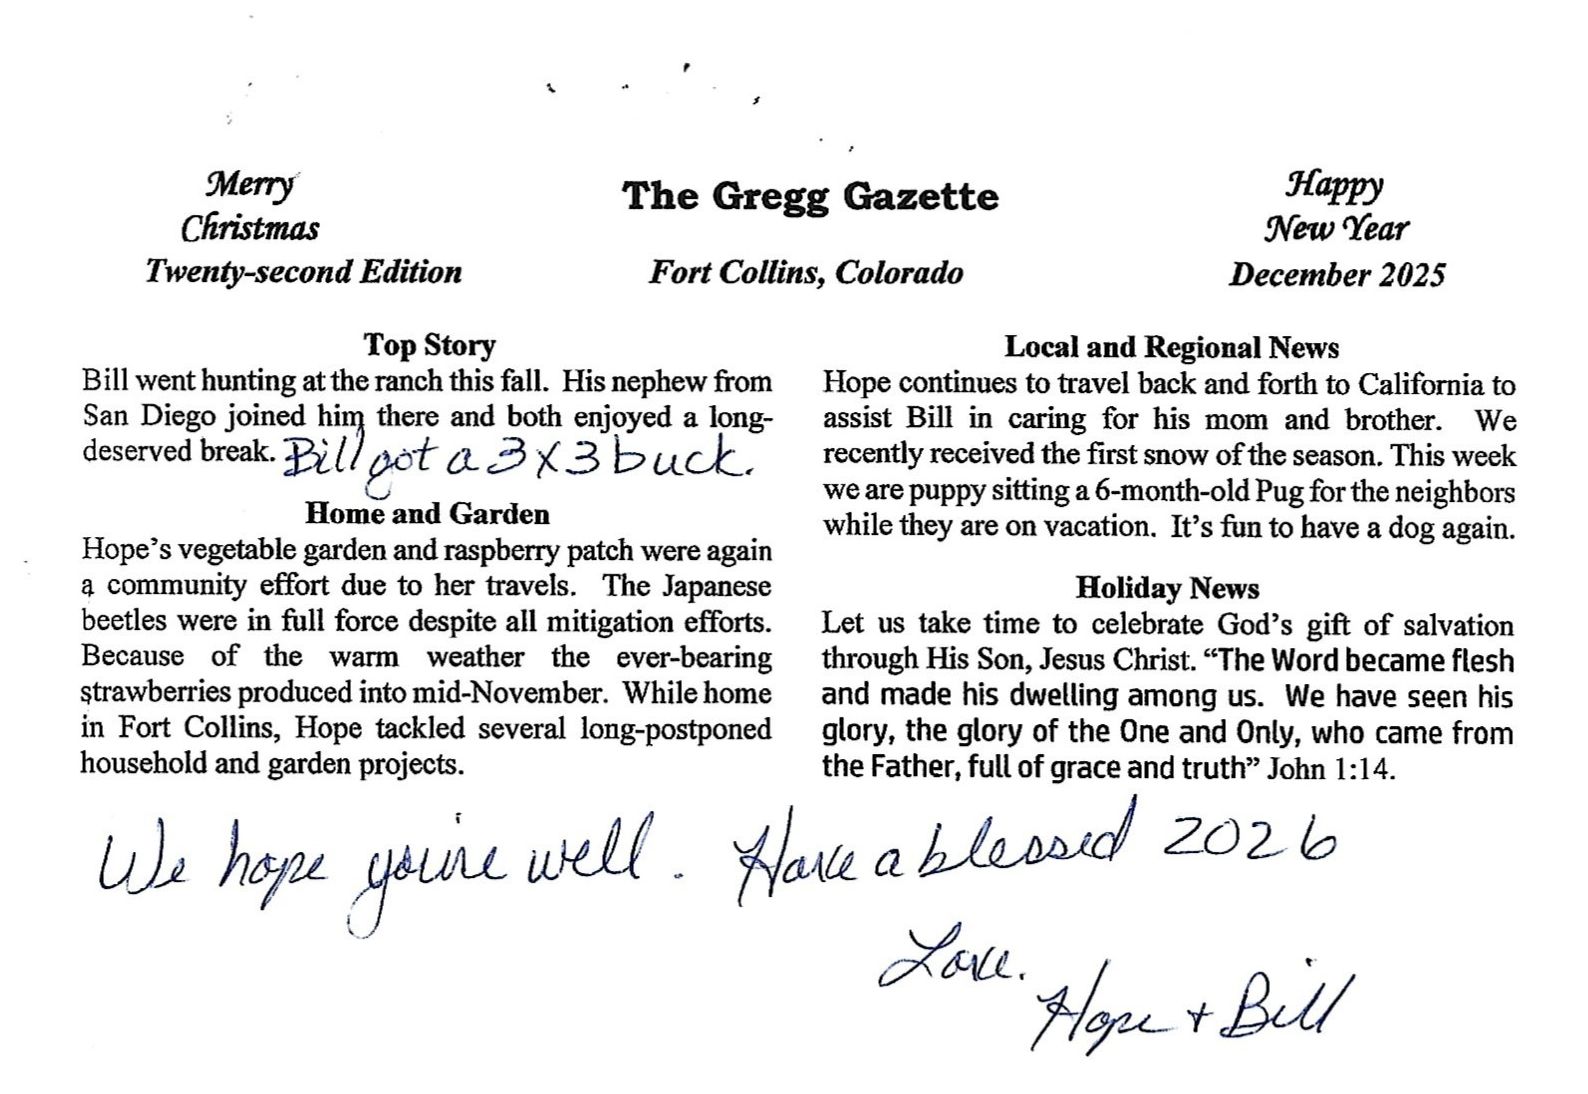 Merry
Christmas
Twenty-second Edition
The Gregg Gazette
Fort Collins, Colorado
Happy
New Year
December 2025
Top Story
Bill went hunting at the ranch this fall. His nephew from
San Diego joined him there and both enjoyed a long-
deserved break. Bill got a 3x3 buck.
Home and Garden
Hope's vegetable garden and raspberry patch were again
a community effort due to her travels. The Japanese
beetles were in full force despite all mitigation efforts.
Because of the warm weather the ever-bearing
strawberries produced into mid-November. While home
in Fort Collins, Hope tackled several long-postponed
household and garden projects.
Local and Regional News
Hope continues to travel back and forth to California to
assist Bill in caring for his mom and brother. We
recently received the first snow of the season. This week
we are puppy sitting a 6-month-old Pug for the neighbors
while they are on vacation. It's fun to have a dog again.
Holiday News
Let us take time to celebrate God's gift of salvation
through His Son, Jesus Christ. "The Word became flesh
and made his dwelling among us. We have seen his
glory, the glory of the One and Only, who came from
the Father, full of grace and truth" John 1:14.
We hope you're well. Have a blessed 2026
Love.
Hope + Bill